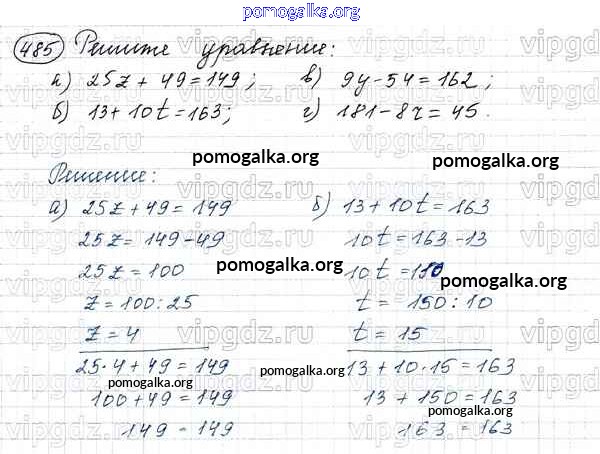 pomogalka.org
485 Решите уравнение:
а) 25z + 49 = 149; в) 9y - 54 = 162;
б) 13 + 10t = 163; г) 181 - 8r = 45.
vipgdz.ru
pomogalka.org
pomogalka.org
Решение:
а) 25z + 49 = 149
25z = 149 - 49
25z = 100
z = 100 : 25
z = 4
25·4 + 49 = 149
100 + 49 = 149
149 = 149
б) 13 + 10t = 163
10t = 163 - 13
10t = 150
t = 150 : 10
t = 15
13 + 10·15 = 163
13 + 150 = 163
163 = 163
pomogalka.org
pomogalka.org
pomogalka.org
pomogalka.org